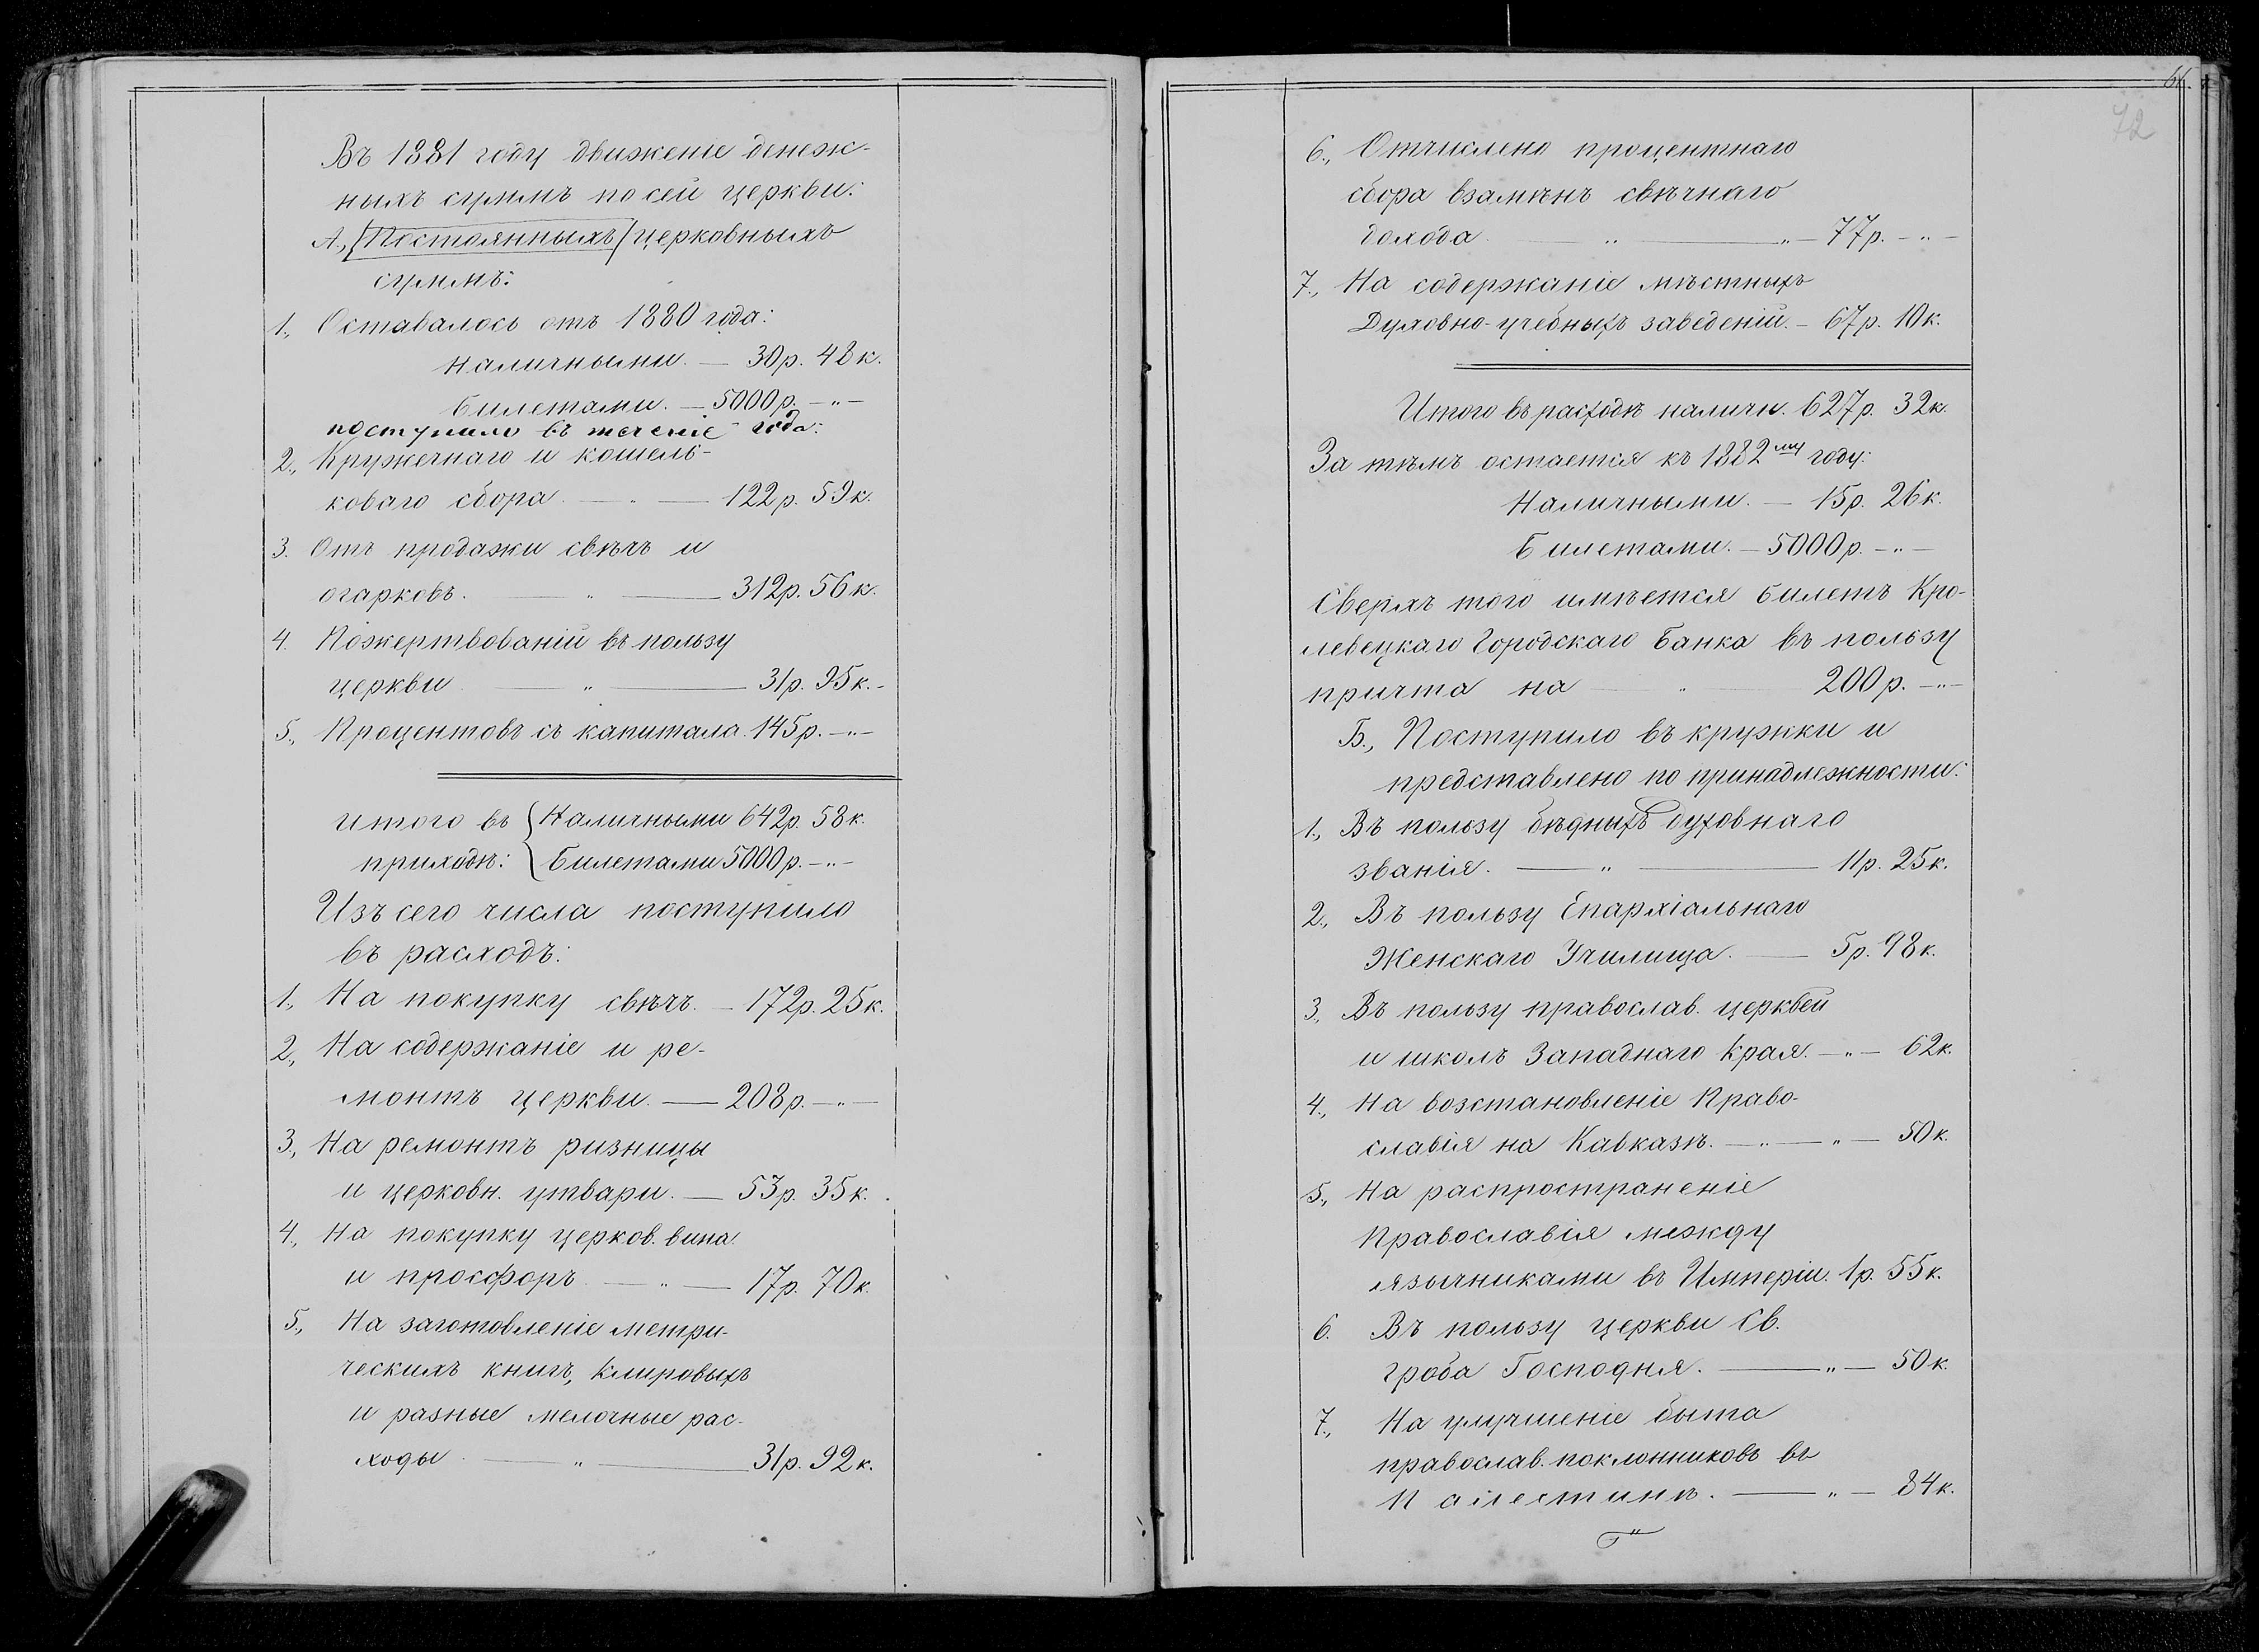 Въ 1881 году движеніе денеж-
ныхъ суммъ по сей церкви:
А., /Постоянныхъ/ церковныхъ
суммъ:
1., Оставалось отъ 1880 года:
Наличными. — 30р. 48к.
билетами. — 5000р. —„—
поступило въ теченіе года:
2., Кружечнаго и кошель-
коваго сбора. — „ — 122р. 59к.
3. Отъ продажи свѣчъ и
огарковъ. — „ — 312р. 56к.
4. Пожертвованій въ пользу
церкви. — „ — 31р. 95к. -
5., Процентовъ съ капитала. 145р. —„—
итого въ { Наличными 642р. 58к.
приходѣ: { Билетами 5000р. —„—
Изъ сего числа поступило
въ расходъ:
1., На покупку свѣчъ. — 172р. 25к.
2., На содержаніе и ре-
монтъ церкви. — 208р. —„—
3., На ремонтъ ризницы
и церковн. утвари. — 53р. 35к.
4., На покупку церков. вина
и просфоръ — „ — 17р. 70к.
5., На заготовленіе метри-
ческихъ книгъ, клировыхъ
и разные мелочные рас-
ходы. — „ — 31р. 92к.
72
6., Отчислено процентнаго
сбора взамѣнъ свѣчнаго
дохода. — „ — „ — 77р. —„—
7., На содержаніе мѣстныхъ
Духовно-учебныхъ заведеній. — 67р. 10к.
Итого въ расходѣ наличн. 627р. 32к.
За тѣмъ остается къ 1882му году:
Наличными. — 15р. 26к.
Билетами. — 5000р. —„—
Сверхъ того имѣется билетъ Кро-
левецкаго Городскаго Банка въ пользу
причта на — „ — 200р. —„—
Б., Поступило въ кружки и
представлено по принадлежности:
1., Въ пользу бѣдныхъ духовнаго
званія. — „ — 11р. 25к.
2., Въ пользу Епархіальнаго
Женскаго Училища. — 5р. 98к.
3., Въ пользу православ. церквей
и школъ Западнаго Края. —„— 62к.
4., На возстановленіе Право-
славія на Кавказѣ. —„—„— 50к.
5., На распространеніе
Православія между
язычниками въ Имперіи. 1р. 55к.
6. Въ пользу церкви Св.
гроба Господня. — „ — 50к.
7., На улучшеніе быта
православ. поклонниковъ въ
Палестинѣ. — „ — 84к.